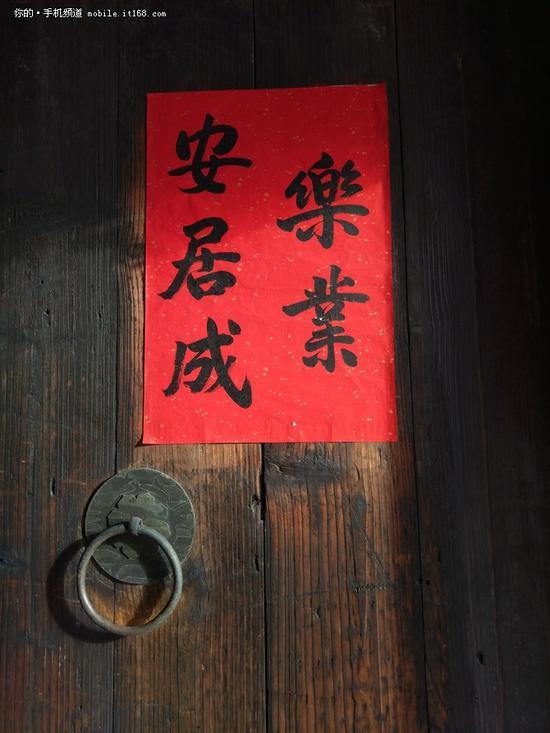 你的·手机频道 mobile.it168.com
樂業
安居成